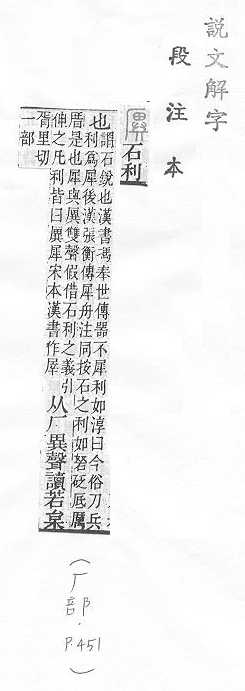 說文解字
段注本
石利
也謂石銳也漢書馮奉世傳器不犀利如淳曰今俗刀兵
利爲犀後漢張衡傳犀舟注同按石之利如砮砭厎厲
厝是也犀與⿸厂異雙聲假借石利之義引
伸之凡利皆曰⿸厂異犀宋本漢書作
从厂異聲讀若枲
胥里切
一部
(厂部.P.451)